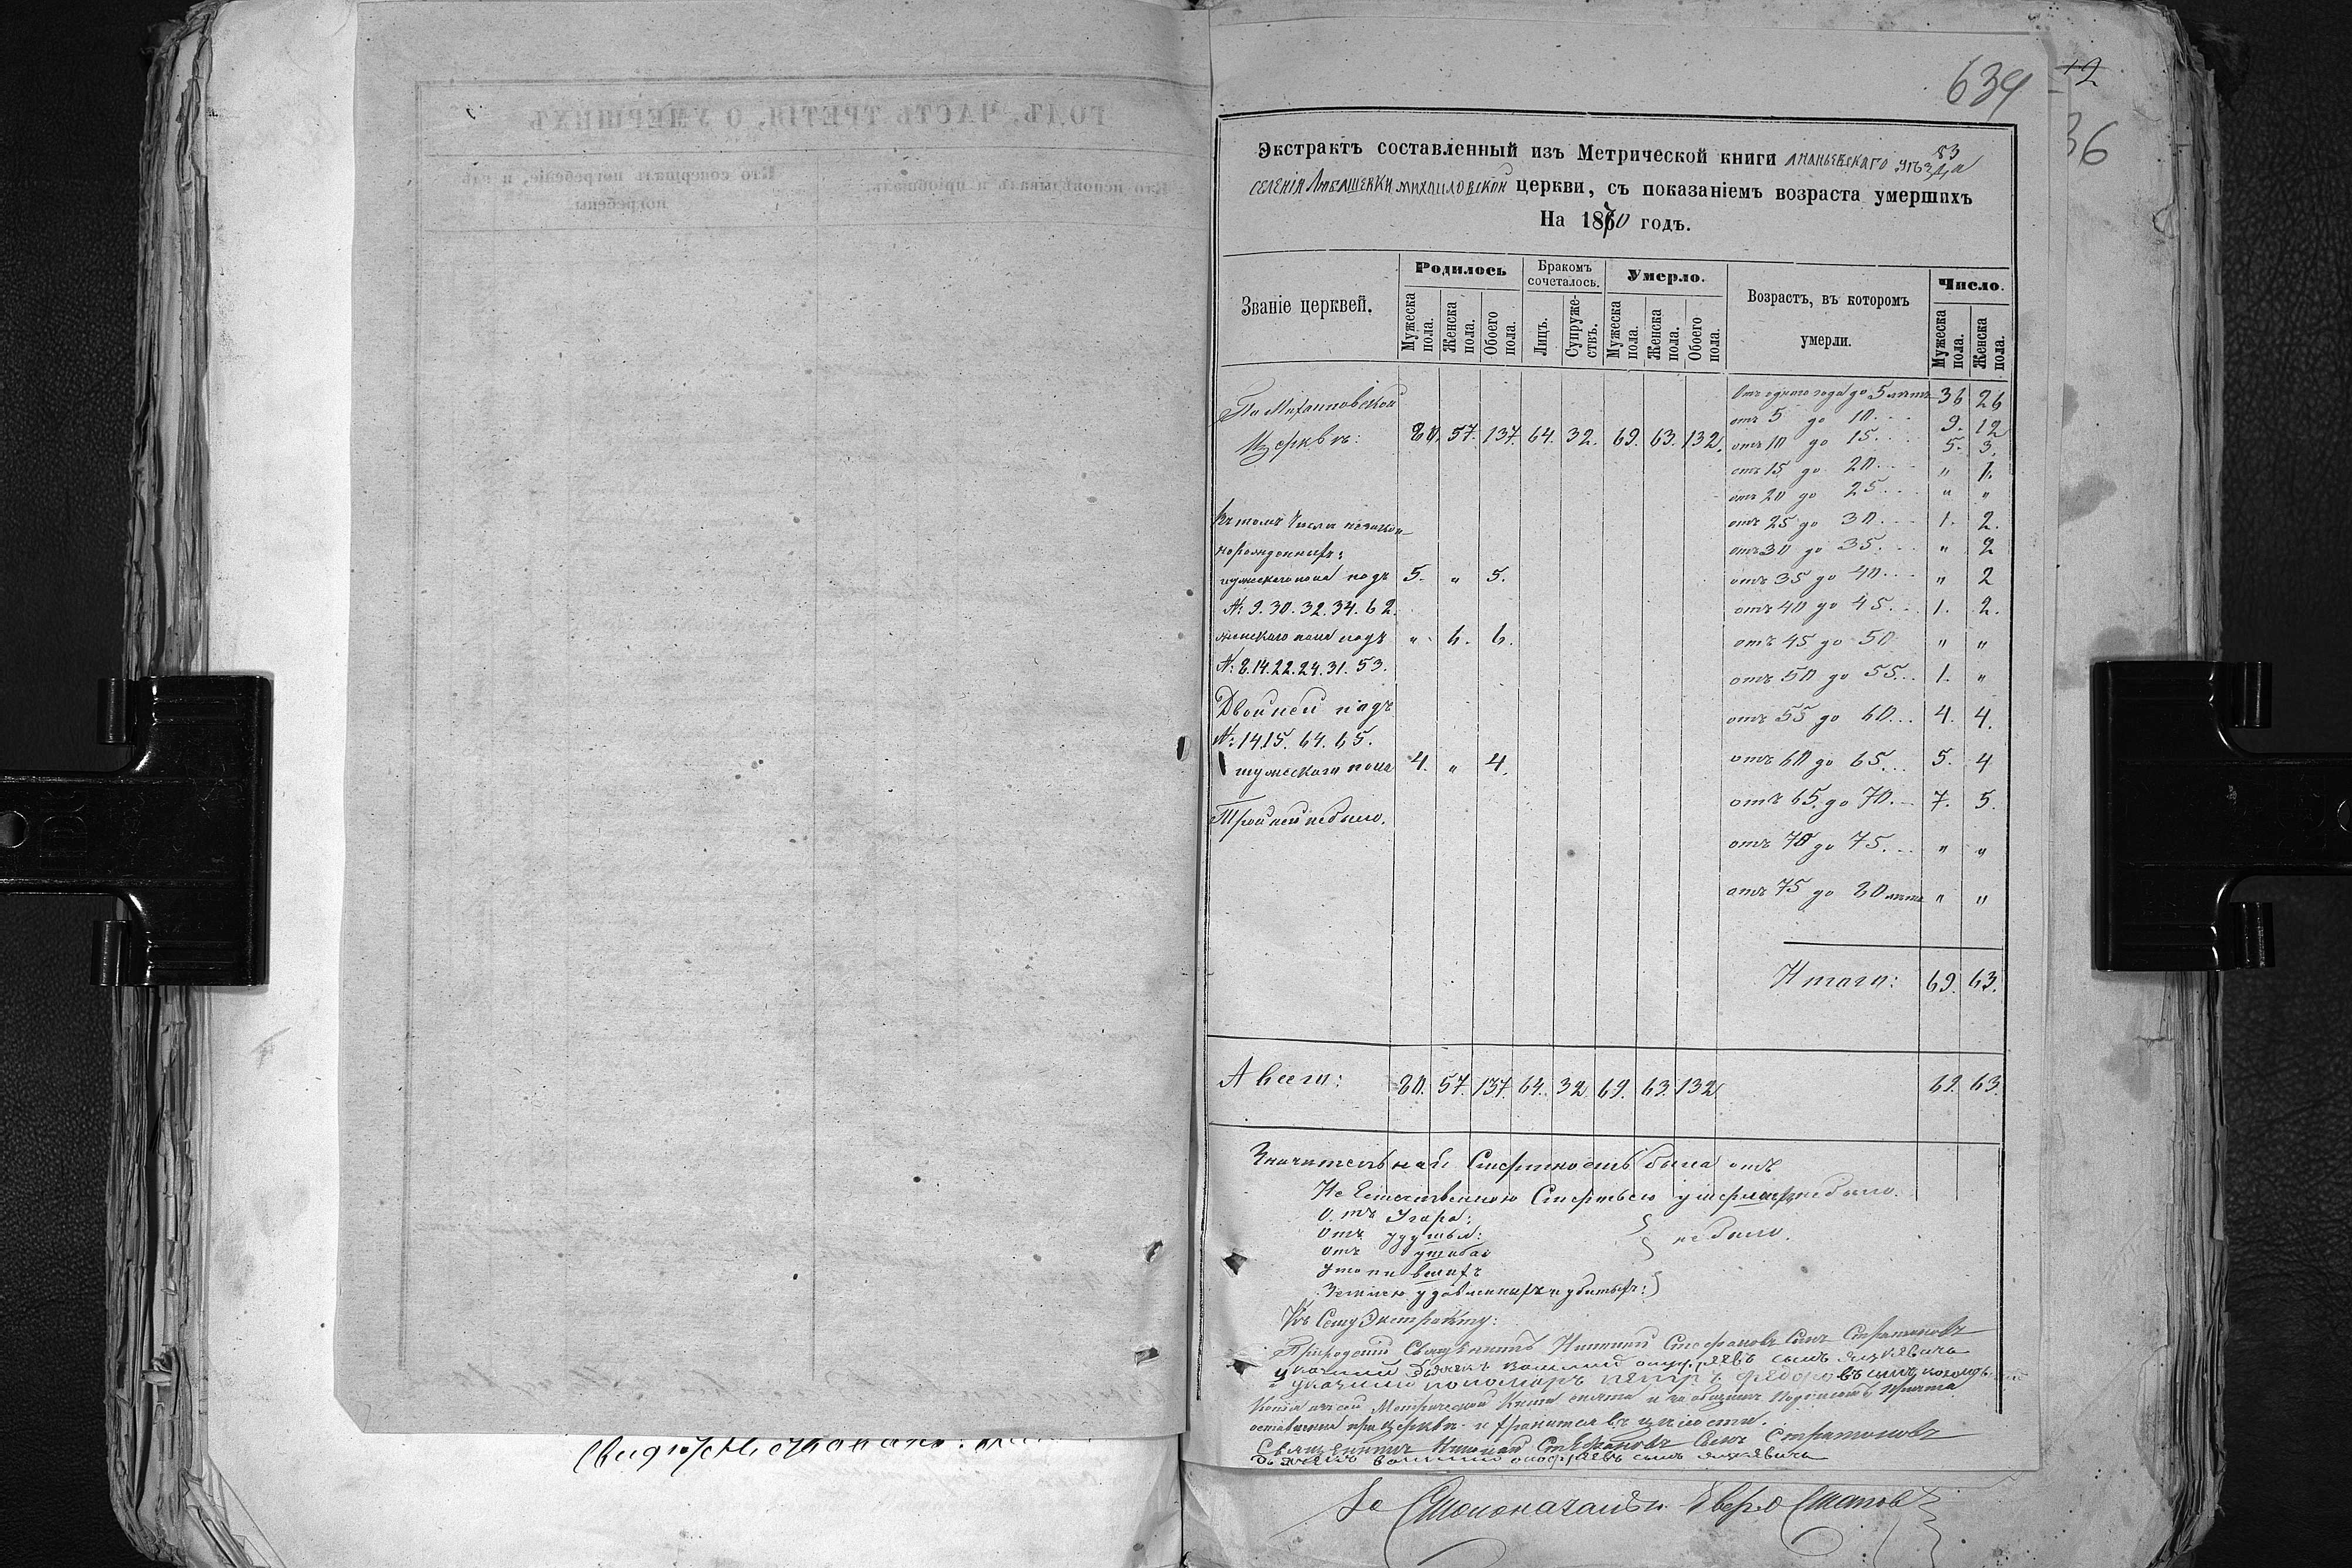 ГОДЪ, ЧАСТЬ ТРЕТІЯ, О УМЕРШИХЪ
Кто совершалъ погребеніе, и гдѣ погребены.
Кто исповѣдывалъ и пріобщалъ.
639
12
36
83
Экстрактъ составленный изъ Метрической книги Ананьевскаго уѣзда
селенія Любашевки Михаиловской церкви, съ показаніемъ возраста умершихъ
На 1870 годъ.
Званіе церквей.
Родилось
Бракомъ сочеталось.
Умерло.
Возрастъ, въ которомъ умерли.
Число.
Мужеска пола.
Женска пола.
Обоего пола.
Лицъ.
Супружествъ.
Мужеска пола.
Женска пола.
Обоего пола.
Мужеска пола.
Женска пола.
По Михаиловской
Церкви: 80. 57. 137. 64. 32. 69. 63. 132.
Отъ одного года до 5 лѣтъ 36 26
отъ 5 до 10... 9. 12
отъ 10 до 15... 5. 3.
отъ 15 до 20... " 1.
отъ 20 до 25... " "
отъ 25 до 30... 1. 2.
отъ 30 до 35... " 2
отъ 35 до 40... " 2
отъ 40 до 45... 1. 2.
отъ 45 до 50 " "
отъ 50 до 55... 1. "
отъ 55 до 60... 4. 4.
отъ 60 до 65... 5. 4
отъ 65. до 70... 7. 5.
отъ 70 до 75... " "
отъ 75 до 80 лѣтъ " "
Итого: 69. 63.
Въ томъ числѣ незакон-
норожденныхъ:
мужескаго пола подъ 5. " 5.
№: 9. 30. 32. 34. 62.
женскаго пола подъ " 6. 6.
№: 8. 14. 22. 24. 31. 53.
Двойней подъ
№: 14 15. 64. 65.
мужескаго пола 4. " 4.
Тройней небыло.
А всего: 80. 57. 137. 64. 32. 69. 63. 132. 69. 63.
Значительная Смертность была отъ
Не Естественною Смертью умершихъ небыло.
Отъ Угара:
Отъ удушья: небыло.
Отъ ушиба:
Утопившихъ
Землею удавленныхъ и убитыхъ:
Къ Сему Экстракту:
Приходскій Священникъ Николай Стефановъ Сынъ Стратоновъ
указный Дьячекъ
указный пономаръ Петръ Федоровъ сынъ
Копія изъ сей Метрической Книги снята и за общимъ подписомъ причта
оставлена при церкви и хранится въ цѣлости.
Священникъ Николай Стефановъ Сынъ Стратоновъ